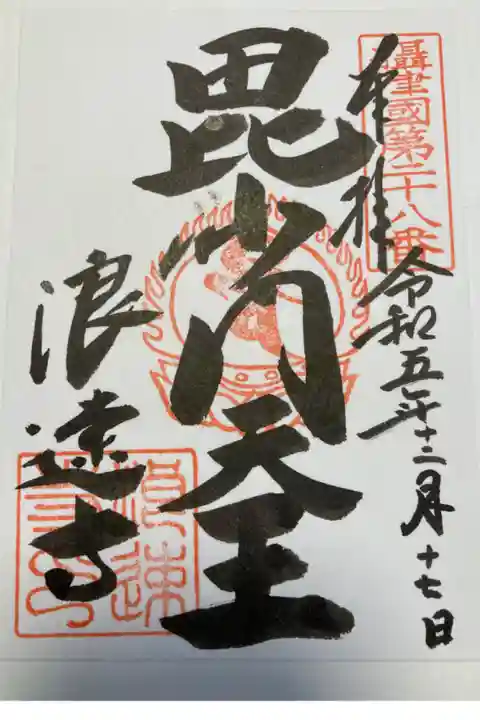 攝津國第二十八番
奉拝 令和五年十二月十七日
毘沙門天王
浪速寺
浪速
寺印